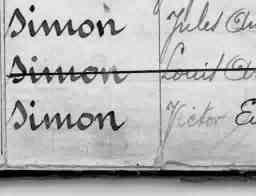 Simon Jules
Simon Louis
Simon Victor